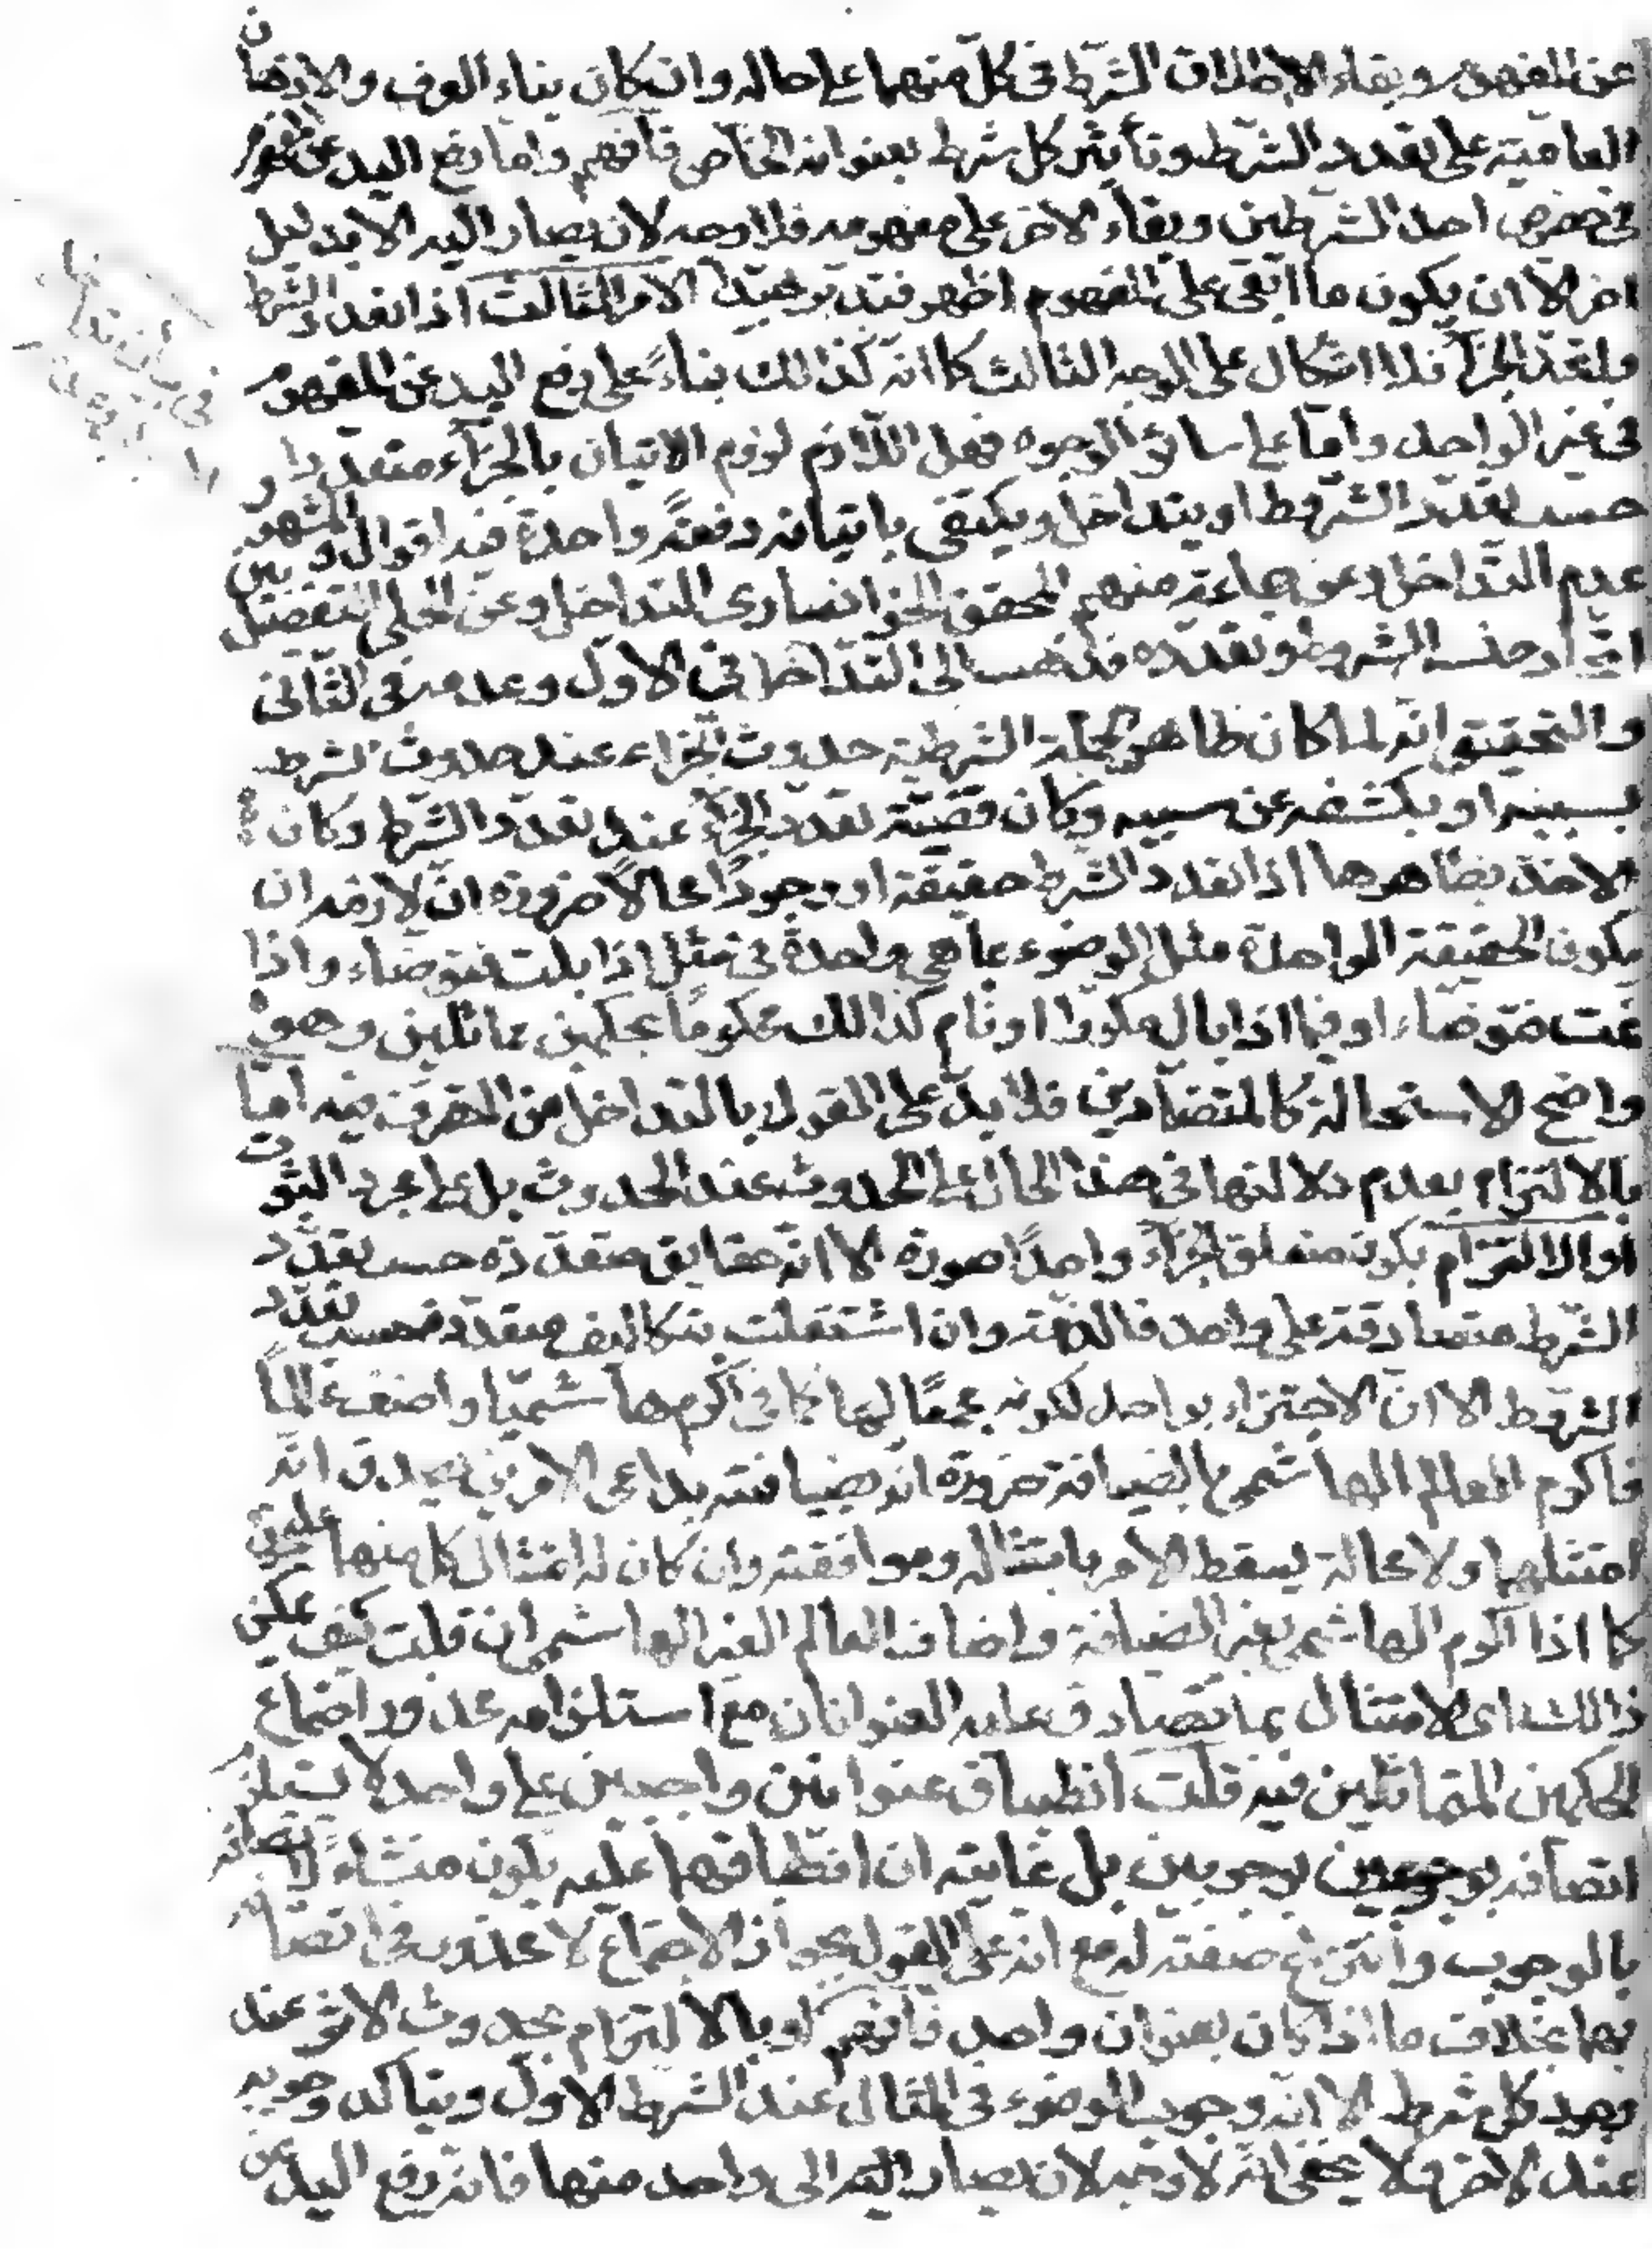 عن المفهوم وبقاء الاطلاق الشرط فى كل منهما على حاله وان كان بناء العرف والاذهان
العامية على تعدد الشرط وتأثير كل شرط بعنوانه الخاص فافهم واما رفع اليد عن المفهوم
فى خصوص احد الشرطين وبقاء الاخر على مفهومه فلا وجه لان يصار اليه الا بدليل
اخر الا ان يكون ما ابقى على المفهوم اظهر فتدبر جيدا الامر الثالث اذا تعدد الشرط
واتحد الجزاء فلا اشكال على الوجه الثالث كما انه كذالك بناءً على رفع اليد عن المفهوم
فى غير الواحد واما على سائر الوجوه فهل اللازم لزوم الاتيان بالجزاء متعددا
حسب تعدد الشروط او يتداخل ويكتفى باتيانه دفعةً واحدة فيه اقوال والمشهور
عدم التداخل وعن جماعة منهم المحقق الخوانسارى التداخل وعن الحلى التفصيل بين
اتحاد جنس الشروط وتعدده فذهب الى التداخل فى الاول وعدمه فى الثانى
والتحقيق انه لما كان ظاهر الجملة الشرطية حدوث الجزاء عند حدوث الشرط
بسببه او بكشفه عن سببه وكان قضيته تعدد الجزاء عند تعدد الشرط وكان
الاخذ بظاهرها اذا تعدد الشرط حقيقة او وجودًا محالًا ضرورة ان لازمه ان
يكون الحقيقة الواحدة مثل الوضوء بما هى واحدة فى مثل اذا بلت فتوضاء واذا
نمت فتوضاء او فيما اذا بال مكررا او نام كذالك محكومًا بحكمين مماثلين وهو
واضح الاستحالة كالمتضادين فلا بد على القول بالتداخل من التصرف فيه اما
بالالتزام بعدم دلالتها فى هذا الحال على الحدوث عند الحدوث بل على مجرد الثبوت
او الالتزام بكون متعلق الجزاء واحدًا صورة الا انه حقايق متعددة حسب تعدد
الشرط متصادقة على واحد فالذمة وان اشتغلت بتكاليف متعددة حسب تعدد
الشروط الا ان الاجتزاء بواحد لكونه مجمعًا لها كما فى اكرم هاشميا واضف عالمًا
فاكرم العالم الهاشمى بالضيافة ضرورة انه بضيافته بداعى الامرين يصدق انه
امتثلهما ولا محالة يسقط الامر بامتثاله وموافقته وان كان له امتثال كل منهما على حدة
كما اذا اكرم الهاشمى بغير الضيافة واضاف العالم الغير الهاشمى ان قلت كيف يمكن
ذالك اى الامتثال بما تصادق عليه العنوانان مع استلزامه محذور اجتماع
الحكمين المتماثلين فيه قلت انطباق عنوانين واجبين على واحد لا يستلزم
اتصافه بوجوبين بل غايته ان انطباقهما عليه يكون منشاءً لاتصافه
بالوجوب وانتزاع صفته له مع انه على القول بجواز الاجتماع لا محذور فى اتصافه
بهما بخلاف ما اذا كان بعنوان واحد فافهم او بالالتزام بحدوث الاثر عند
وجود كل شرط الا انه وجوب الوضوء فى المثال عند الشرط الاول ويتاكد وجوبه
عند الاخر ولا يخفى انه لا وجه لان يصار اليه الى واحد منها فانه رفع اليد عن